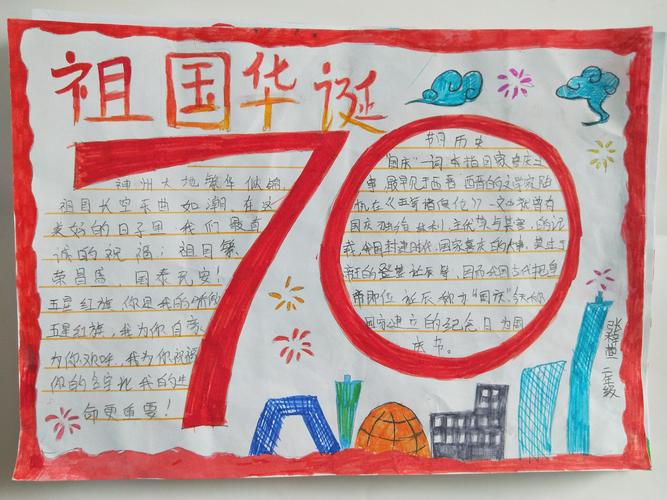 祖国华诞
70
神州大地繁华似锦,
祖国长空乐曲如潮,在这
美好的日子里我们最真
诚的祝福:祖国繁
荣昌盛,国泰民安!
五星红旗,你是我的骄傲
五星红旗,我为你自豪
为你欢呼,我为你祝福
你的名字比我的生
命更重要!
节日历史
"国庆"一词,本指国家喜庆之
事,最早见于西晋。西晋的文学家陆
机在《五等诸侯论》一文中就曾有
国庆独飨其利,主忧莫与其害,的记
载,我国封建时代,国家喜庆的大事,莫过于
帝王的登基诞辰等,因而我国古代把皇
帝即位、诞辰称为"国庆",今天称
国家建立的纪念日为国
庆节。
二年级